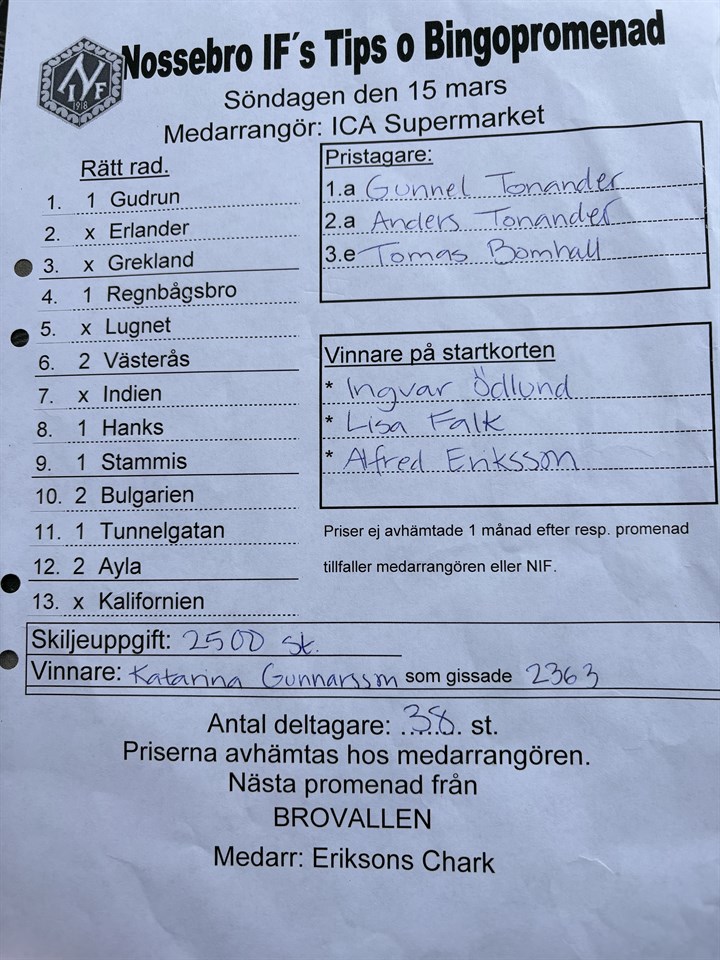 Nossebro IF´s Tips o Bingopromenad
NIF
1918
Söndagen den 15 mars
Medarrangör: ICA Supermarket
Rätt rad.
1. 1 Gudrun
2. x Erlander
3. x Grekland
4. 1 Regnbågsbro
5. x Lugnet
6. 2 Västerås
7. x Indien
8. 1 Hanks
9. 1 Stammis
10. 2 Bulgarien
11. 1 Tunnelgatan
12. 2 Ayla
13. x Kalifornien
Pristagare:
1.a Gunnel Tonander
2.a Anders Tonander
3.e Tomas Bomhall
Vinnare på startkorten
* Ingvar Ödlund
* Lisa Falk
* Alfred Eriksson
Priser ej avhämtade 1 månad efter resp. promenad
tillfaller medarrangören eller NIF.
Skiljeuppgift: 2500 st.
Vinnare: Katarina Gunnarsson som gissade 2363
Antal deltagare: 38 st.
Priserna avhämtas hos medarrangören.
Nästa promenad från
BROVALLEN
Medarr: Eriksons Chark